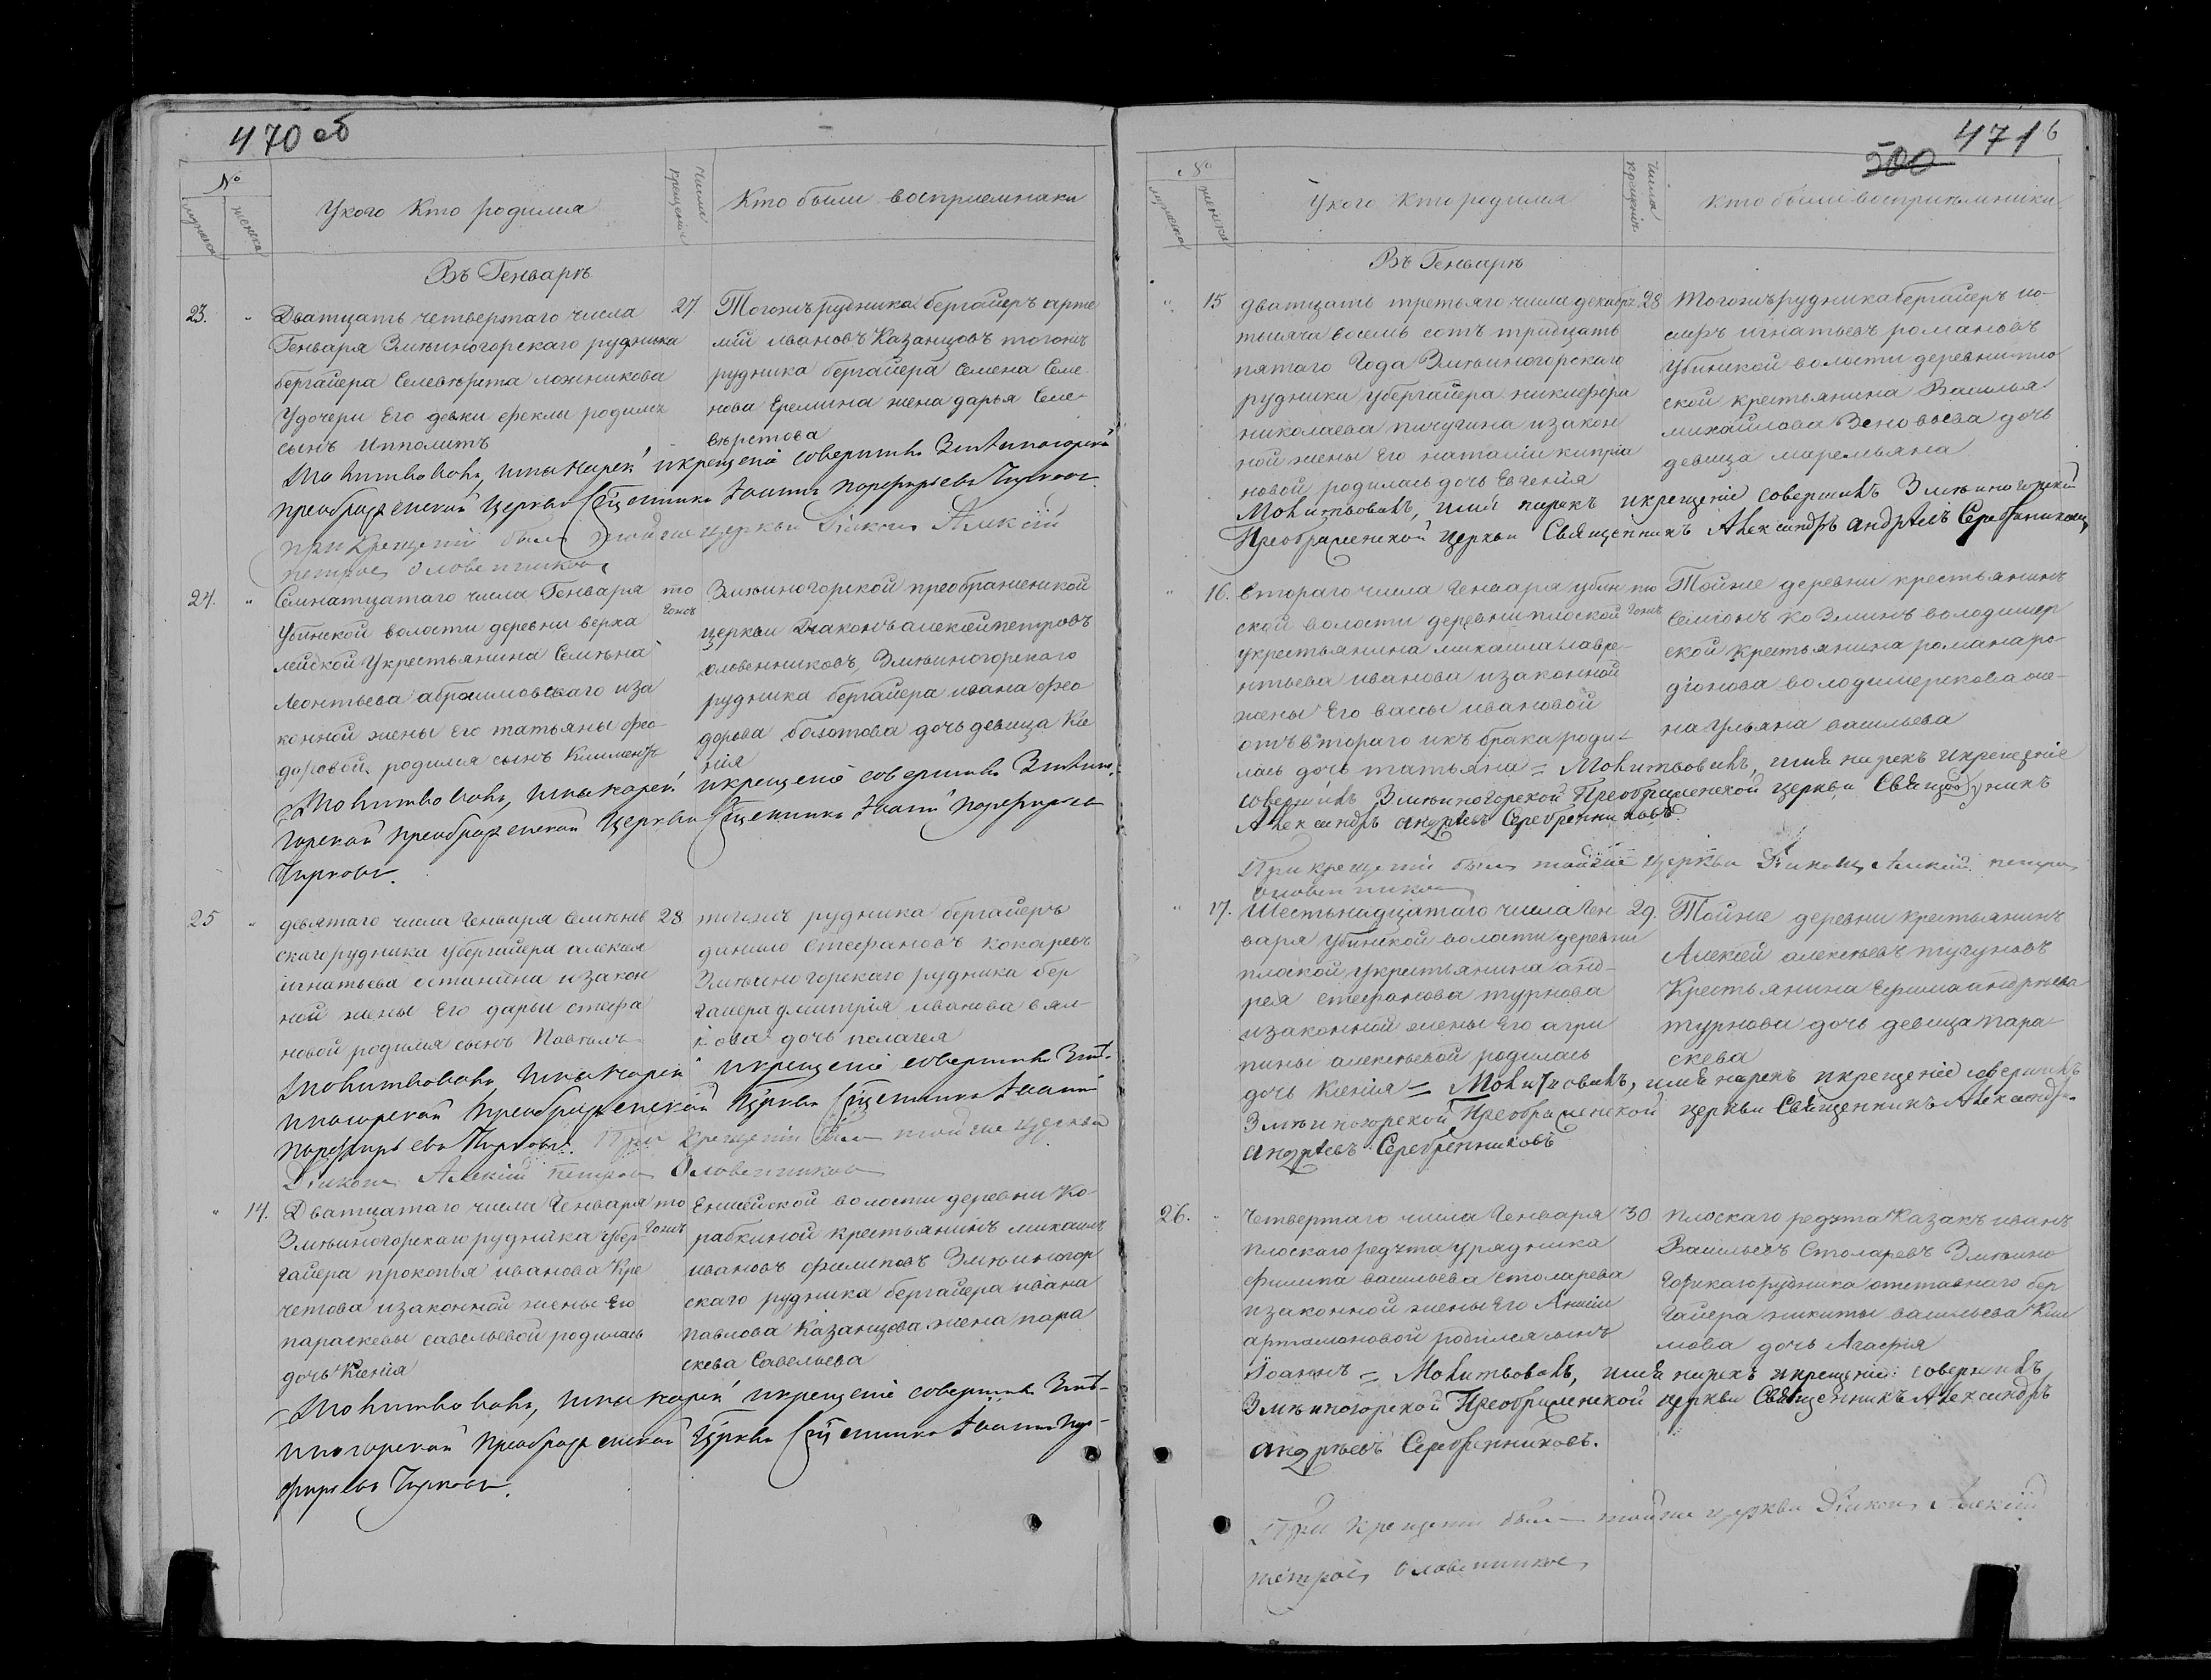 470 об
№
мужеска
женска
У кого кто родился
Число крещения
Кто были восприемники
Въ Генварѣ
23.
Дватцать четвертаго числа
Генваря Змѣиногорскаго рудника
бергайера Селеверста ложникова
У дочери Его девки феклы родился
сынъ Ипполитъ
27.
Тогожъ рудника бергайеръ арте
мiй ивановъ Казанцовъ тогожъ
рудника бергайера Семена Семе
нова Еремина жена дарья Селе-
вѣрстова
Молитвовалъ, имя нарекъ и крещенiе совершилъ Змѣиногорской
преображенской Церкви Священникъ Iоаннъ порфирьевъ Чирковъ.
При крещенiи былъ тойже церкви Дiаконъ Алексiй
петровъ Оловенниковъ
24.
Семнатцатаго числа Генваря
Убинской волости деревни верха
лейской У крестьянина Семѣна
Леонтьева абрамовскаго и за
конной жены его татьяны фео
доровой родился сынъ Климентъ
то
гожъ
Змѣиногорской преображенской
церкви Диаконъ алексей петровъ
оловенниковъ, Змѣиногорскаго
рудника бергайера ивана фео
дорова болотова дочь девица Ксе
нiя
Молитвовалъ, имя нарекъ и крещенiе совершилъ Змѣино-
горской преображенской Церкви Священникъ Iоаннъ порфирьевъ
Чирковъ.
25
девятаго числа Генваря Семѣнов
скаго рудника у бергайера алексея
игнатьева останина и закон
ной жены Его дарьи стефа
новой родился сынъ Павѣлъ
28
тогожъ рудника бергайеръ
данило Стефановъ кокаревъ
Змѣиногорскаго рудника бер
гайера дмитрiя иванова вял-
кова дочь пелагея
Молитвовалъ, имя нарекъ и крещенiе совершилъ Змѣ-
иногорской преображенской Церкви Священникъ Iоаннъ
порфирьевъ Чирковъ. При крещенiи былъ тойже церкви
Дiаконъ Алексiй петровъ Оловенниковъ
14.
Дватцатаго числа Генваря
Змѣиногорскаго рудника у бер-
гайера прокопья иванова Кре
четова и законной жены Его
параскевы савельевой родилась
дочь Ксенiя
то
гожъ
Енисейской волости деревни Ко-
рабкиной крестьянинъ михаилъ
ивановъ филиповъ Змѣиногор
скаго рудника бергайера ивана
павлова Казанцова жена пара
скева Савельева
Молитвовалъ, имя нарекъ и крещенiе совершилъ Змѣ-
иногорской преображенской Церкви Священникъ Iоаннъ пор-
фирьевъ Чирковъ.
471 6
500
№
мужеска
женска
У кого кто родился
Числа крещенiя
Кто были восприѣмники
Въ Генварѣ
15
дватцать третьяго числа декабря
тысяча восемь сотъ тридцать
пятаго Года Змѣиногорскаго
рудника у бергайера никифора
николаева пичугина и закон
ной жены Его наталiи кипрiа
новой родилась дочь Евгенiя
28
Тогожъ рудника бергайеръ ио-
сифъ игнатьевъ романовъ
Убинской волости деревни пло
ской крестьянина Василья
михайлова Зеновьева дочь
девица маремьяна
Молитвовалъ, имя нарекъ и крещенiе совершилъ Змѣиногорской
Преображенской церкви Священникъ Александръ андрѣевъ Серебренниковъ
16.
втораго числа Генваря убин
ской волости деревни плоской
у крестьянина михаила лавре-
нтьева иванова и законной
жены Его вассы ивановой
отъ втораго ихъ брака роди-
лась дочь татьяна = Молитвовалъ, имя нарекъ и крещенiе
то
гожъ
Тойже деревни крестьянинъ
Семионъ Козминъ володимер
ской крестьянина романа ро
дiонова володимерскова же-
на Ульяна васильева
совершилъ Змѣиногорской Преображенской церкви Священникъ
Александръ андрѣевъ Серебренниковъ.
При крещенiи былъ тойже церкви Дiаконъ Алексiй петровъ
Оловенниковъ
17.
Шестьнадцатаго числа Ген
варя Убинской волости деревни
плоской у крестьянина анд-
рея стефанова турнова
и законной жены Его агри
пины алексѣевой родилась
дочь Ксенiя = Молитвовалъ, имя нарекъ и крещенiе совершилъ
29.
Тойже деревни крестьянинъ
Алексей алексѣевъ тугуновъ
Крестьянина Ефима андрѣева
турнова дочь девица пара
скева
Змѣиногорской Преображенской церкви Священникъ Александръ
андрѣевъ Серебренниковъ
26.
Четвертаго числа Генваря
плоскаго редута урядника
филипа васильева столарева
и законной жены Его Аннiи
артамановой родился сынъ
Iоаннъ = Молитвовалъ, имя нарекъ и крещенiе совершилъ
30
плоскаго редута Казакъ иванъ
Васильевъ Столаревъ Змѣино
горскаго рудника отставнаго бер
гайера никиты васильева Кли
мова дочь Агафiя
Змѣиногорской Преображенской церкви Священникъ Александръ
андрѣевъ Серебренниковъ.
При крещенiи былъ тойже церкви Дiаконъ Алексiй
петровъ Оловенниковъ